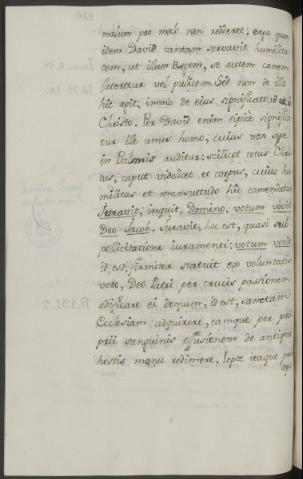 malum pro malo non redderet: erga quem
idem David tantam servavit humilita
tem, ut illum Regem, se autem canem
fateretur vel pulicem. Sed non de illo
hic agit, immo de eius significato, id est,
Christo. Per David enim sæpe significa
tur ille unus homo, cuius vox sæpe
in Psalmis auditur: scilicet totus Chris
tus, caput videlicet et corpus, cuius hu
militas et mansuetudo hic commendatur
Juravit, inquit, Domino, votum vovit
Deo Jacob. Juravit, hoc est, quasi sub
pollicitatione iuramenti: votum vovit
id est, firmiter statuit ex voluntatis
voto, Deo Patri per crucis passionem
ædificare ei domum, id est, sanctam
Ecclesiam acquirere, eamque per pro
prii sanguinis effusionem de antiqui
hostis manu redimere. Septe itaque